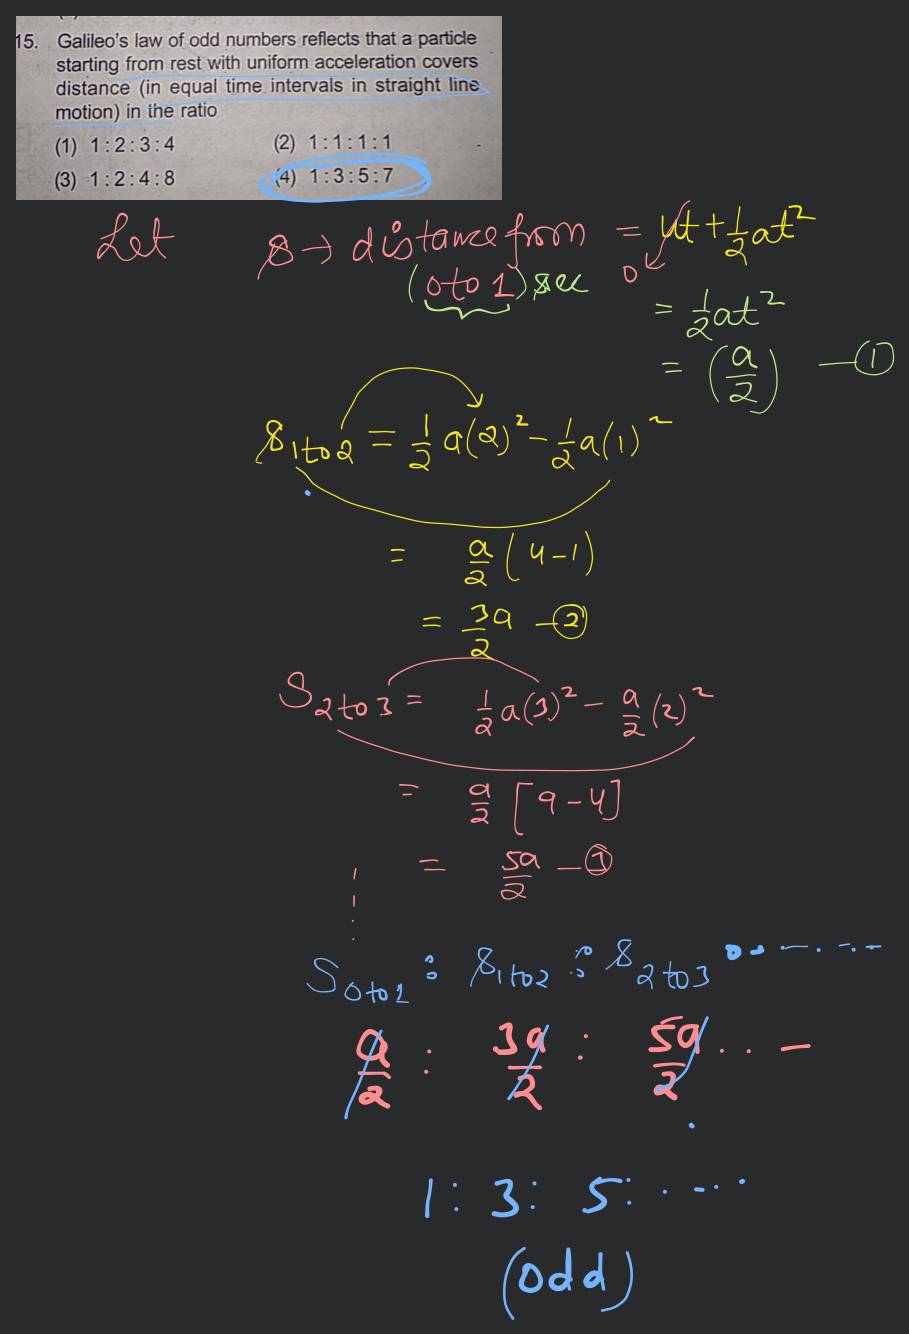 15. Galileo's law of odd numbers reflects that a particle
starting from rest with uniform acceleration covers
distance (in equal time intervals in straight line
motion) in the ratio
(1) 1 : 2 : 3 : 4 (2) 1 : 1 : 1 : 1
(3) 1 : 2 : 4 : 8 (4) 1 : 3 : 5 : 7
Let S → distance from = ut + 1/2 at²
(0 to 1) sec 0
= 1/2 at²
= (a/2) — ①
S 1 to 2 = 1/2 a(2)² - 1/2 a(1)²
= a/2 (4-1)
= 3a/2 — ②
S 2 to 3 = 1/2 a(3)² - a/2 (2)²
= a/2 [9-4]
= 5a/2 — ③
S 0 to 1 : S 1 to 2 : S 2 to 3 ......
a/2 : 3a/2 : 5a/2 .. –
1 : 3 : 5 : .....
(odd)